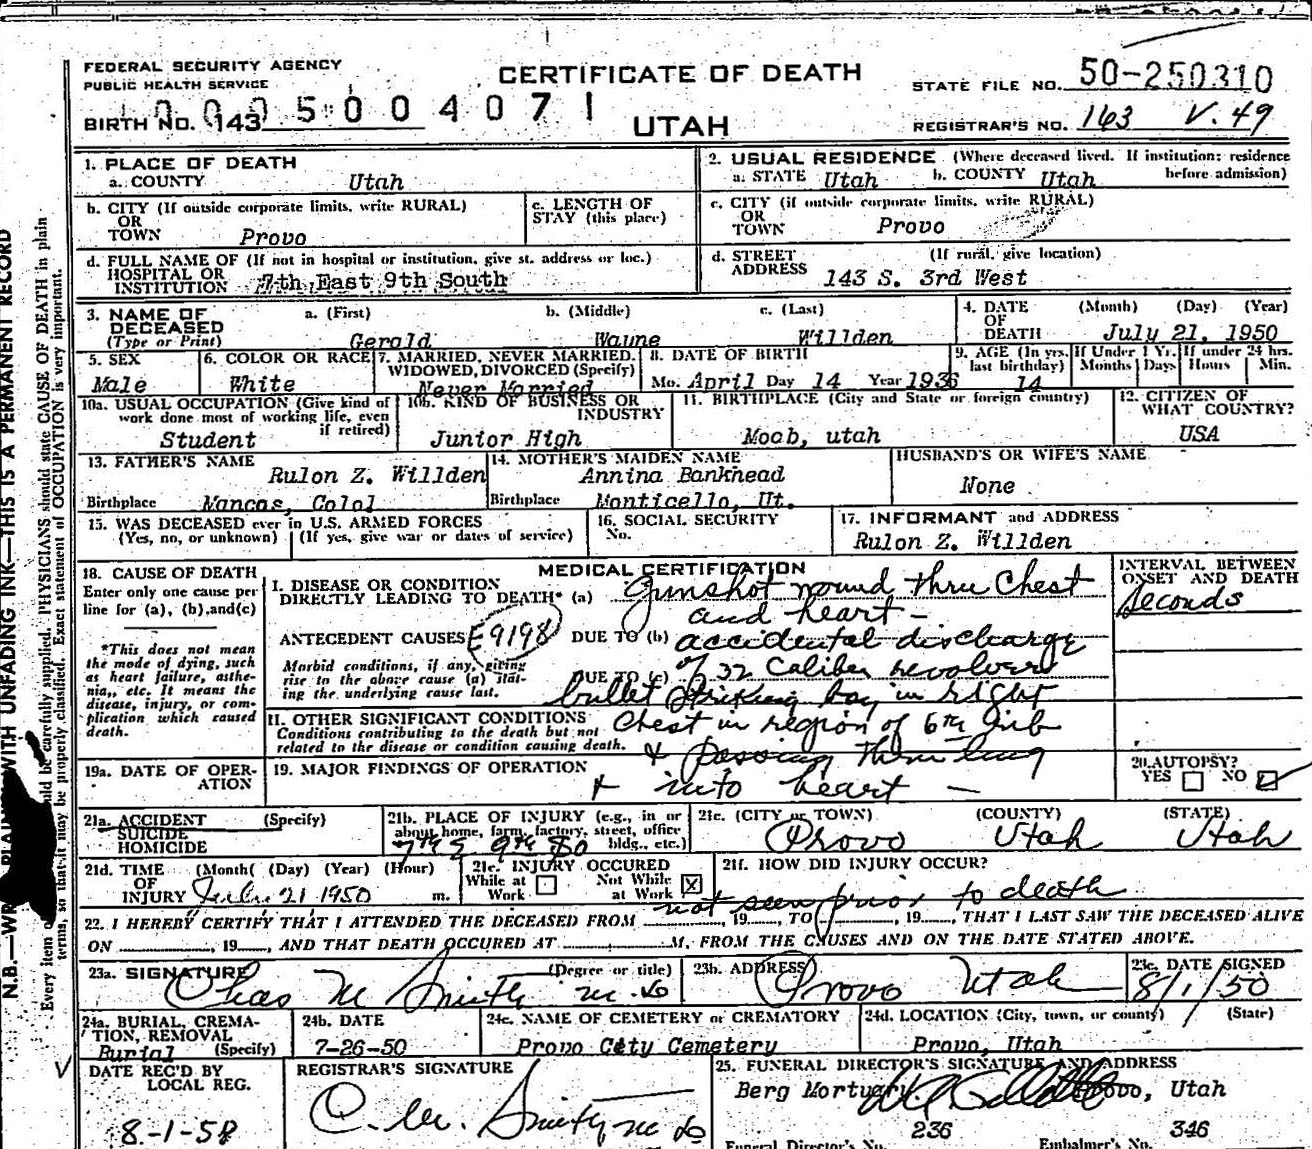 FEDERAL SECURITY AGENCY
PUBLIC HEALTH SERVICE
CERTIFICATE OF DEATH
STATE FILE NO. 50-250310
BIRTH NO. 143
005004071
UTAH
REGISTRAR'S NO. 163 V. 49
1. PLACE OF DEATH
a. COUNTY Utah
2. USUAL RESIDENCE (Where deceased lived. If institution: residence before admission)
a. STATE Utah b. COUNTY Utah
b. CITY (If outside corporate limits, write RURAL)
OR
TOWN Provo
c. LENGTH OF
STAY (this place)
c. CITY (if outside corporate limits, write RURAL)
OR
TOWN Provo
d. FULL NAME OF (If not in hospital or institution, give st. address or loc.)
HOSPITAL OR
INSTITUTION 7th East 9th South
d. STREET (If rural, give location)
ADDRESS 143 S. 3rd West
3. NAME OF a. (First) b. (Middle) c. (Last)
DECEASED
(Type or Print) Gerald Wayne Willden
4. DATE (Month) (Day) (Year)
OF
DEATH July 21, 1950
5. SEX
Male
6. COLOR OR RACE
White
7. MARRIED, NEVER MARRIED,
WIDOWED, DIVORCED (Specify)
Never Married
8. DATE OF BIRTH
Mo. April Day 14 Year 1936
9. AGE (In yrs. last birthday)
14
If Under 1 Yr.
Months Days
If under 24 hrs.
Hours Min.
10a. USUAL OCCUPATION (Give kind of
work done most of working life, even
if retired)
Student
10b. KIND OF BUSINESS OR
INDUSTRY
Junior High
11. BIRTHPLACE (City and State or foreign country)
Moab, utah
12. CITIZEN OF
WHAT COUNTRY?
USA
13. FATHER'S NAME
Rulon Z. Willden
Birthplace Mancos, Colol
14. MOTHER'S MAIDEN NAME
Annina Bankhead
Birthplace Monticello, Ut.
HUSBAND'S OR WIFE'S NAME
None
15. WAS DECEASED ever in U.S. ARMED FORCES
(Yes, no, or unknown) (If yes, give war or dates of service)
16. SOCIAL SECURITY
No.
17. INFORMANT and ADDRESS
Rulon Z. Willden
18. CAUSE OF DEATH
Enter only one cause per
line for (a), (b), and (c)
*This does not mean
the mode of dying, such
as heart failure, asthe-
nia, etc. It means the
disease, injury, or com-
plication which caused
death.
MEDICAL CERTIFICATION
I. DISEASE OR CONDITION
DIRECTLY LEADING TO DEATH* (a) Gunshot wound thru Chest
and heart -
ANTECEDENT CAUSES E9198 DUE TO (b) accidental discharge
Morbid conditions, if any, giving
rise to the above cause (a) stat-
ing the underlying cause last.
DUE TO (c) of 32 Caliber revolver
bullet striking boy in right
II. OTHER SIGNIFICANT CONDITIONS
Conditions contributing to the death but not
related to the disease or condition causing death.
Chest in region of 6th rib
& passing thru lung
INTERVAL BETWEEN
ONSET AND DEATH
Seconds
19a. DATE OF OPER-
ATION
19. MAJOR FINDINGS OF OPERATION
+ into heart -
20. AUTOPSY?
YES NO
21a. ACCIDENT (Specify)
SUICIDE
HOMICIDE
21b. PLACE OF INJURY (e.g., in or
about home, farm, factory, street, office
bldg., etc.)
7th E 9th So
21c. (CITY or TOWN) (COUNTY) (STATE)
Provo Utah Utah
21d. TIME (Month) (Day) (Year) (Hour)
OF
INJURY July 21 1950 m.
21e. INJURY OCCURED
While at Work Not While at Work X
21f. HOW DID INJURY OCCUR?
not seen prior to death
22. I HEREBY CERTIFY THAT I ATTENDED THE DECEASED FROM 19 , TO , 19 , THAT I LAST SAW THE DECEASED ALIVE
ON , 19 , AND THAT DEATH OCCURED AT M, FROM THE CAUSES AND ON THE DATE STATED ABOVE.
23a. SIGNATURE (Degree or title)
Chas M Smith M.D
23b. ADDRESS
Provo Utah
23c. DATE SIGNED
8/1/50
24a. BURIAL, CREMA-
TION, REMOVAL
Burial (Specify)
24b. DATE
7-26-50
24c. NAME OF CEMETERY or CREMATORY
Provo City Cemetery
24d. LOCATION (City, town, or county) (State)
Provo, Utah
DATE REC'D BY
LOCAL REG.
REGISTRAR'S SIGNATURE
C. M. Smith M D
25. FUNERAL DIRECTOR'S SIGNATURE AND ADDRESS
Berg Mortuary Provo, Utah
Funeral Director's No. 236 Embalmer's No. 346
N.B.—WRITE PLAINLY WITH UNFADING INK—THIS IS A PERMANENT RECORD